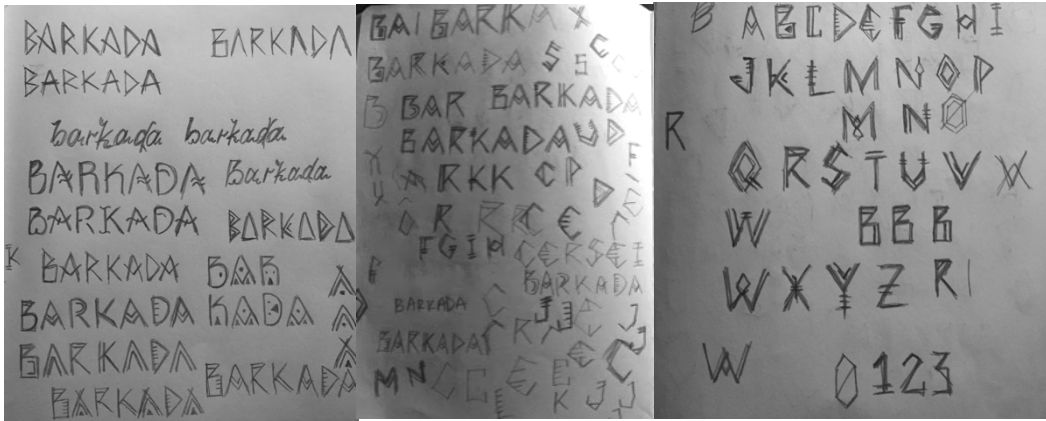 BARKADA BARKADA
BARKADA
barkada barkada
BARKADA barkada
BARKADA BARKADA
K BARKADA BAR
BARKADA KADA
BARKADA
BARKADA BARKADA
BAI BARKA X
BARKADA S S C
B BAR BARKADA
BARKADA U D
RKK C D
R R R C E
F G I H C E R S E I
BARKADA
BARKADA
BARKADA
M N C C E E
K J J
B A B C D E F G H I
J K L M N O P
R M N O
Q R S T U V X
W B B B
W X Y Z R
W 0 1 2 3